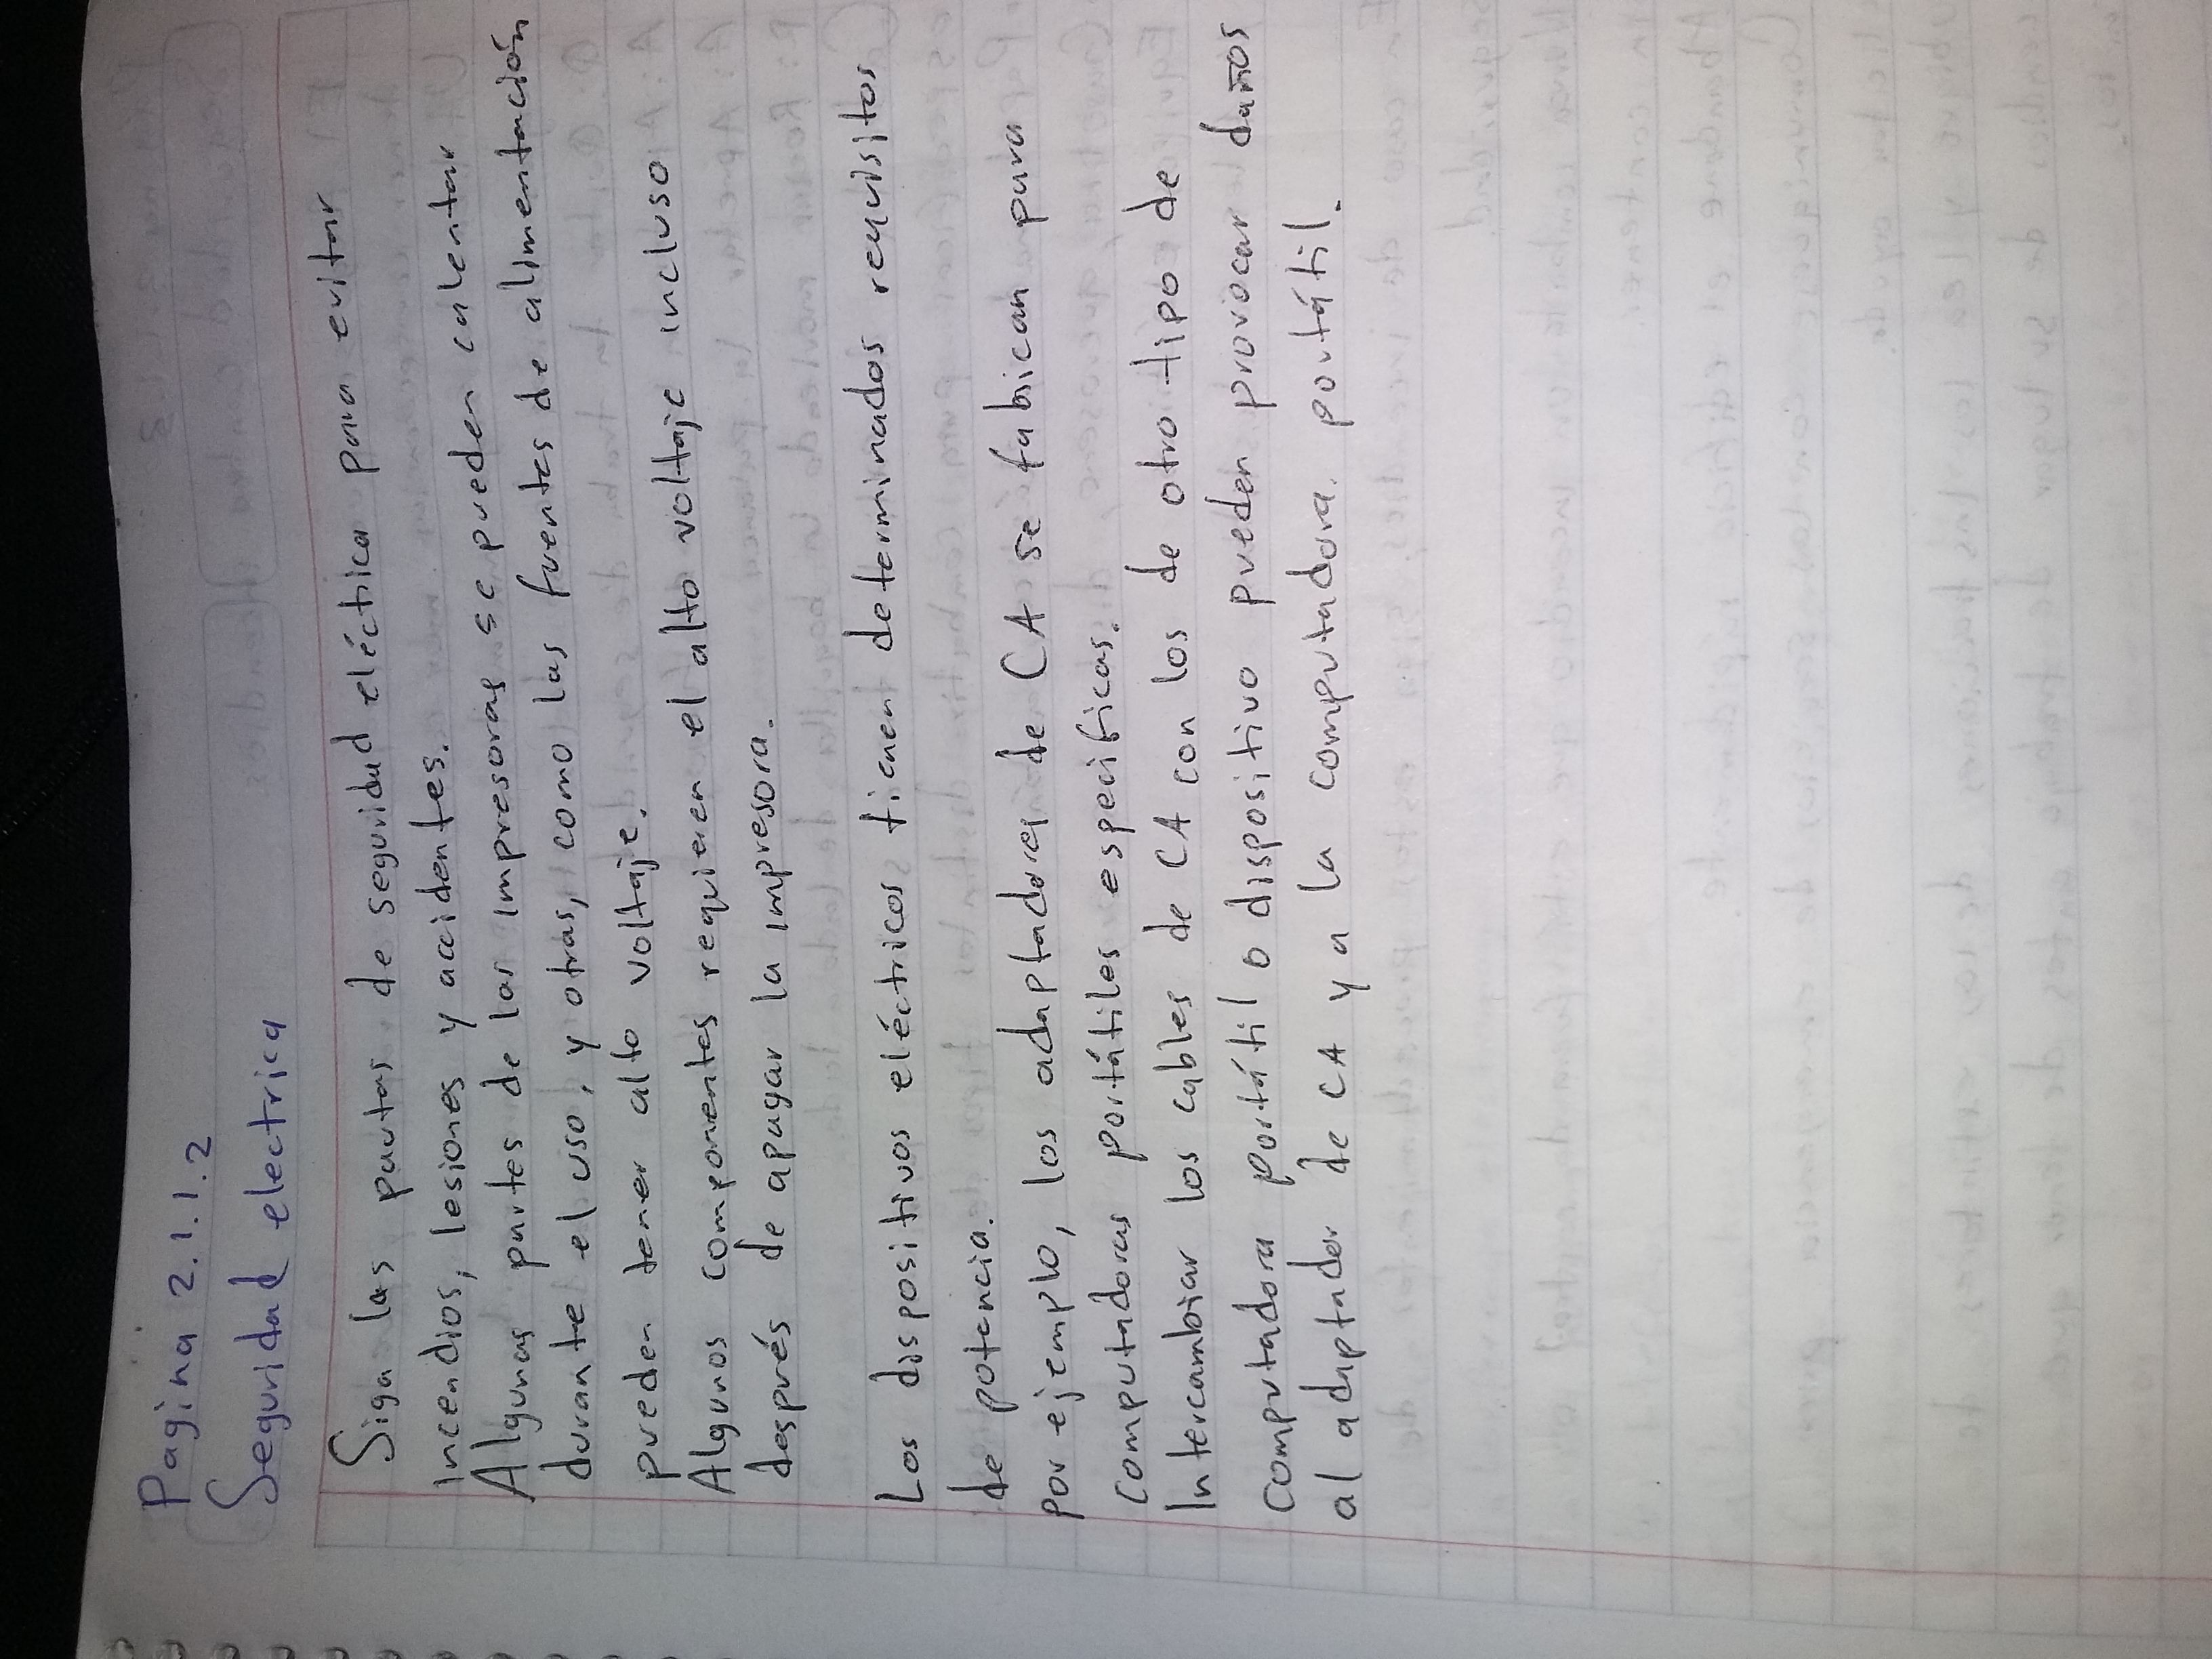 Pagina 2.1.1.2
Seguridad electrica
Siga las pautas de seguridad eléctrica para evitar
incendios, lesiones y accidentes.
Algunas partes de las impresoras se pueden calentar
durante el uso, y otras, como las fuentes de alimentación
pueden tener alto voltaje.
Algunos componentes requieren el alto voltaje incluso
después de apagar la impresora.
Los dispositivos eléctricos tienen determinados requisitos
de potencia.
por ejemplo, los adaptadores de CA se fabrican para
computadoras portátiles especificas.
Intercambiar los cables de CA con los de otro tipo de
computadora portátil o dispositivo pueden provocar daños
al adaptador de CA y a la computadora portátil.